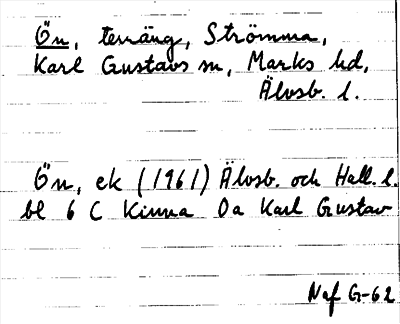 Ön, terräng, Strömma,
Karl Gustavs sn, Marks hd,
Älvsb. l.
Ön, ek (1961) Älvsb. och Hall. l.
bl 6 C Kinna 0a Karl Gustav
Naf G-62